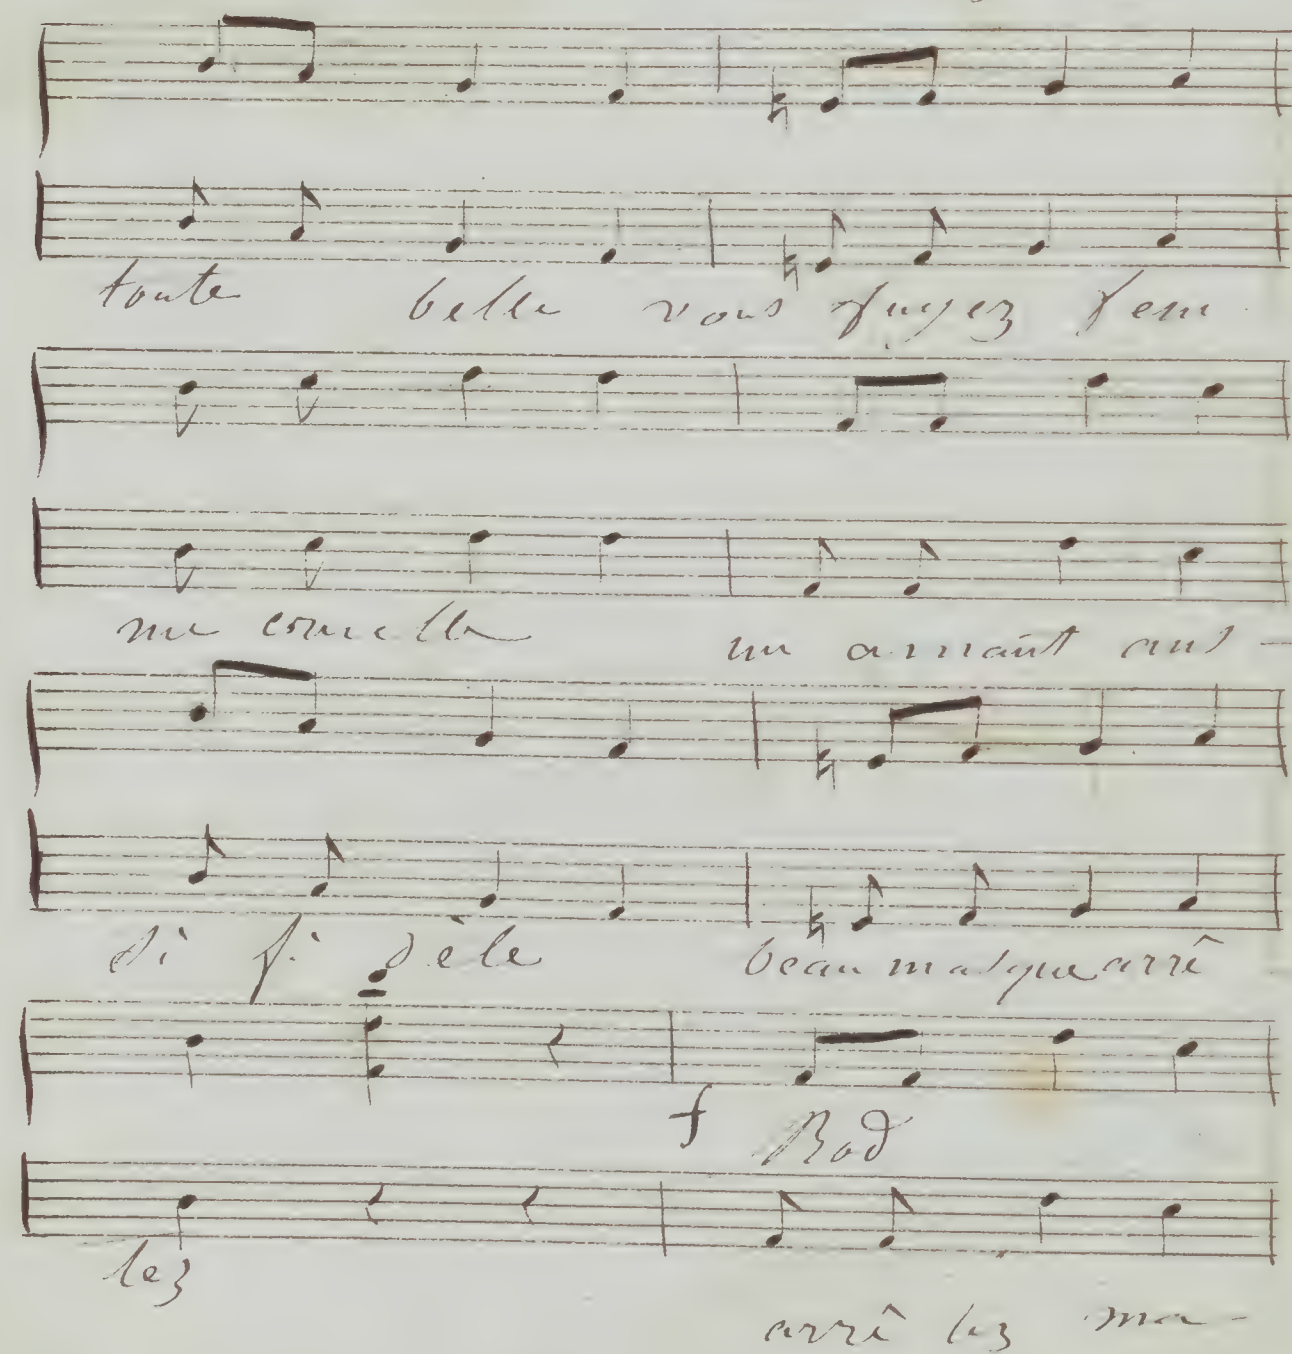 toute belle vous fuyez fem
me cruelle un amant aus-
si fi dèle beau masque arrê
tez
f Rod
arrê tez ma-